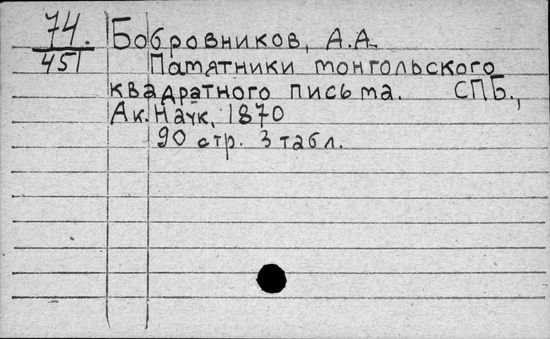 74.
451
Бобровников, А.А.
Памятники монгольского
квадратного письма. СПБ.,
Ак. Наук, 1870
90 стр. 3 табл.